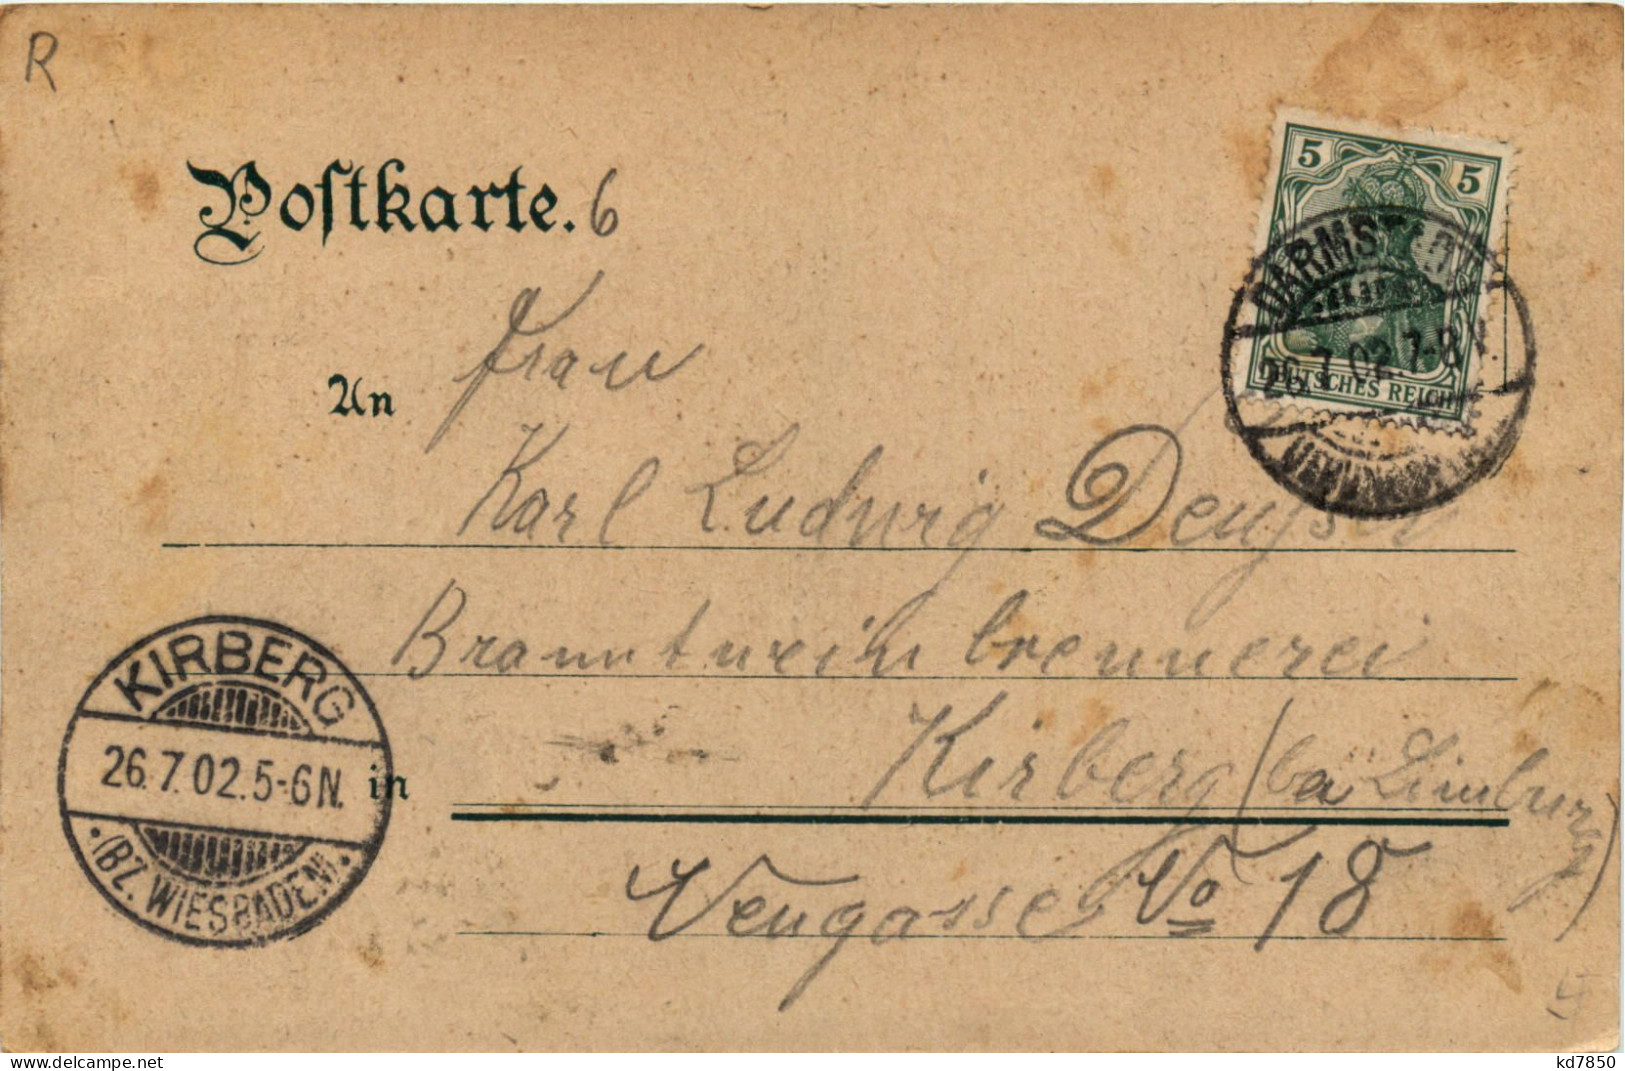 R
Postkarte. 6
5 5
DARMSTADT
26.7.02.7-8V.
DEUTSCHES REICH
An Frau
Karl Ludwig
Branntweinbrennerei
in Kirberg (bei Limburg)
Neugasse No 18
KIRBERG
26.7.02.5-6N.
(BZ. WIESBADEN).
delcampe.net
kd7850